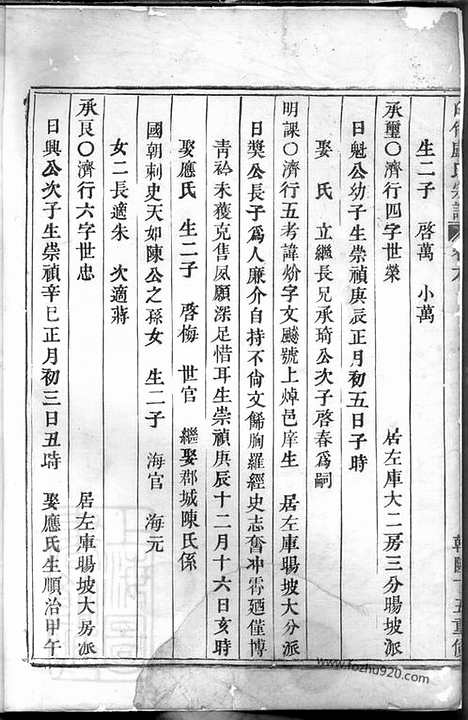 生二子 啓萬 小萬
承璽〇濟行四字世榮 居左庫大二房三分暘坡派
日魁公幼子生崇禎庚辰正月初五日子時
娶 氏 立繼長兄承琦公次子啓春爲嗣
明課〇濟行五考諱炌字文颷號上焯邑庠生 居左庫暘坡大分派
日奬公長子爲人廉介自持不尙文餙胸羅經史志奮冲霄廼僅博
靑衿未獲克售夙願深足惜耳生崇禎庚辰十二月十六日亥時
娶應氏 生二子 啓梅 世官 繼娶郡城陳氏係
國朝剌史天如陳公之孫女 生二子 海官 海元
女二長適朱 次適蔣
承艮〇濟行六字世忠 居左庫暘坡大房派
日興公次子生崇禎辛巳正月初三日丑時 娶應氏生順治甲午
www.fozhu920.com